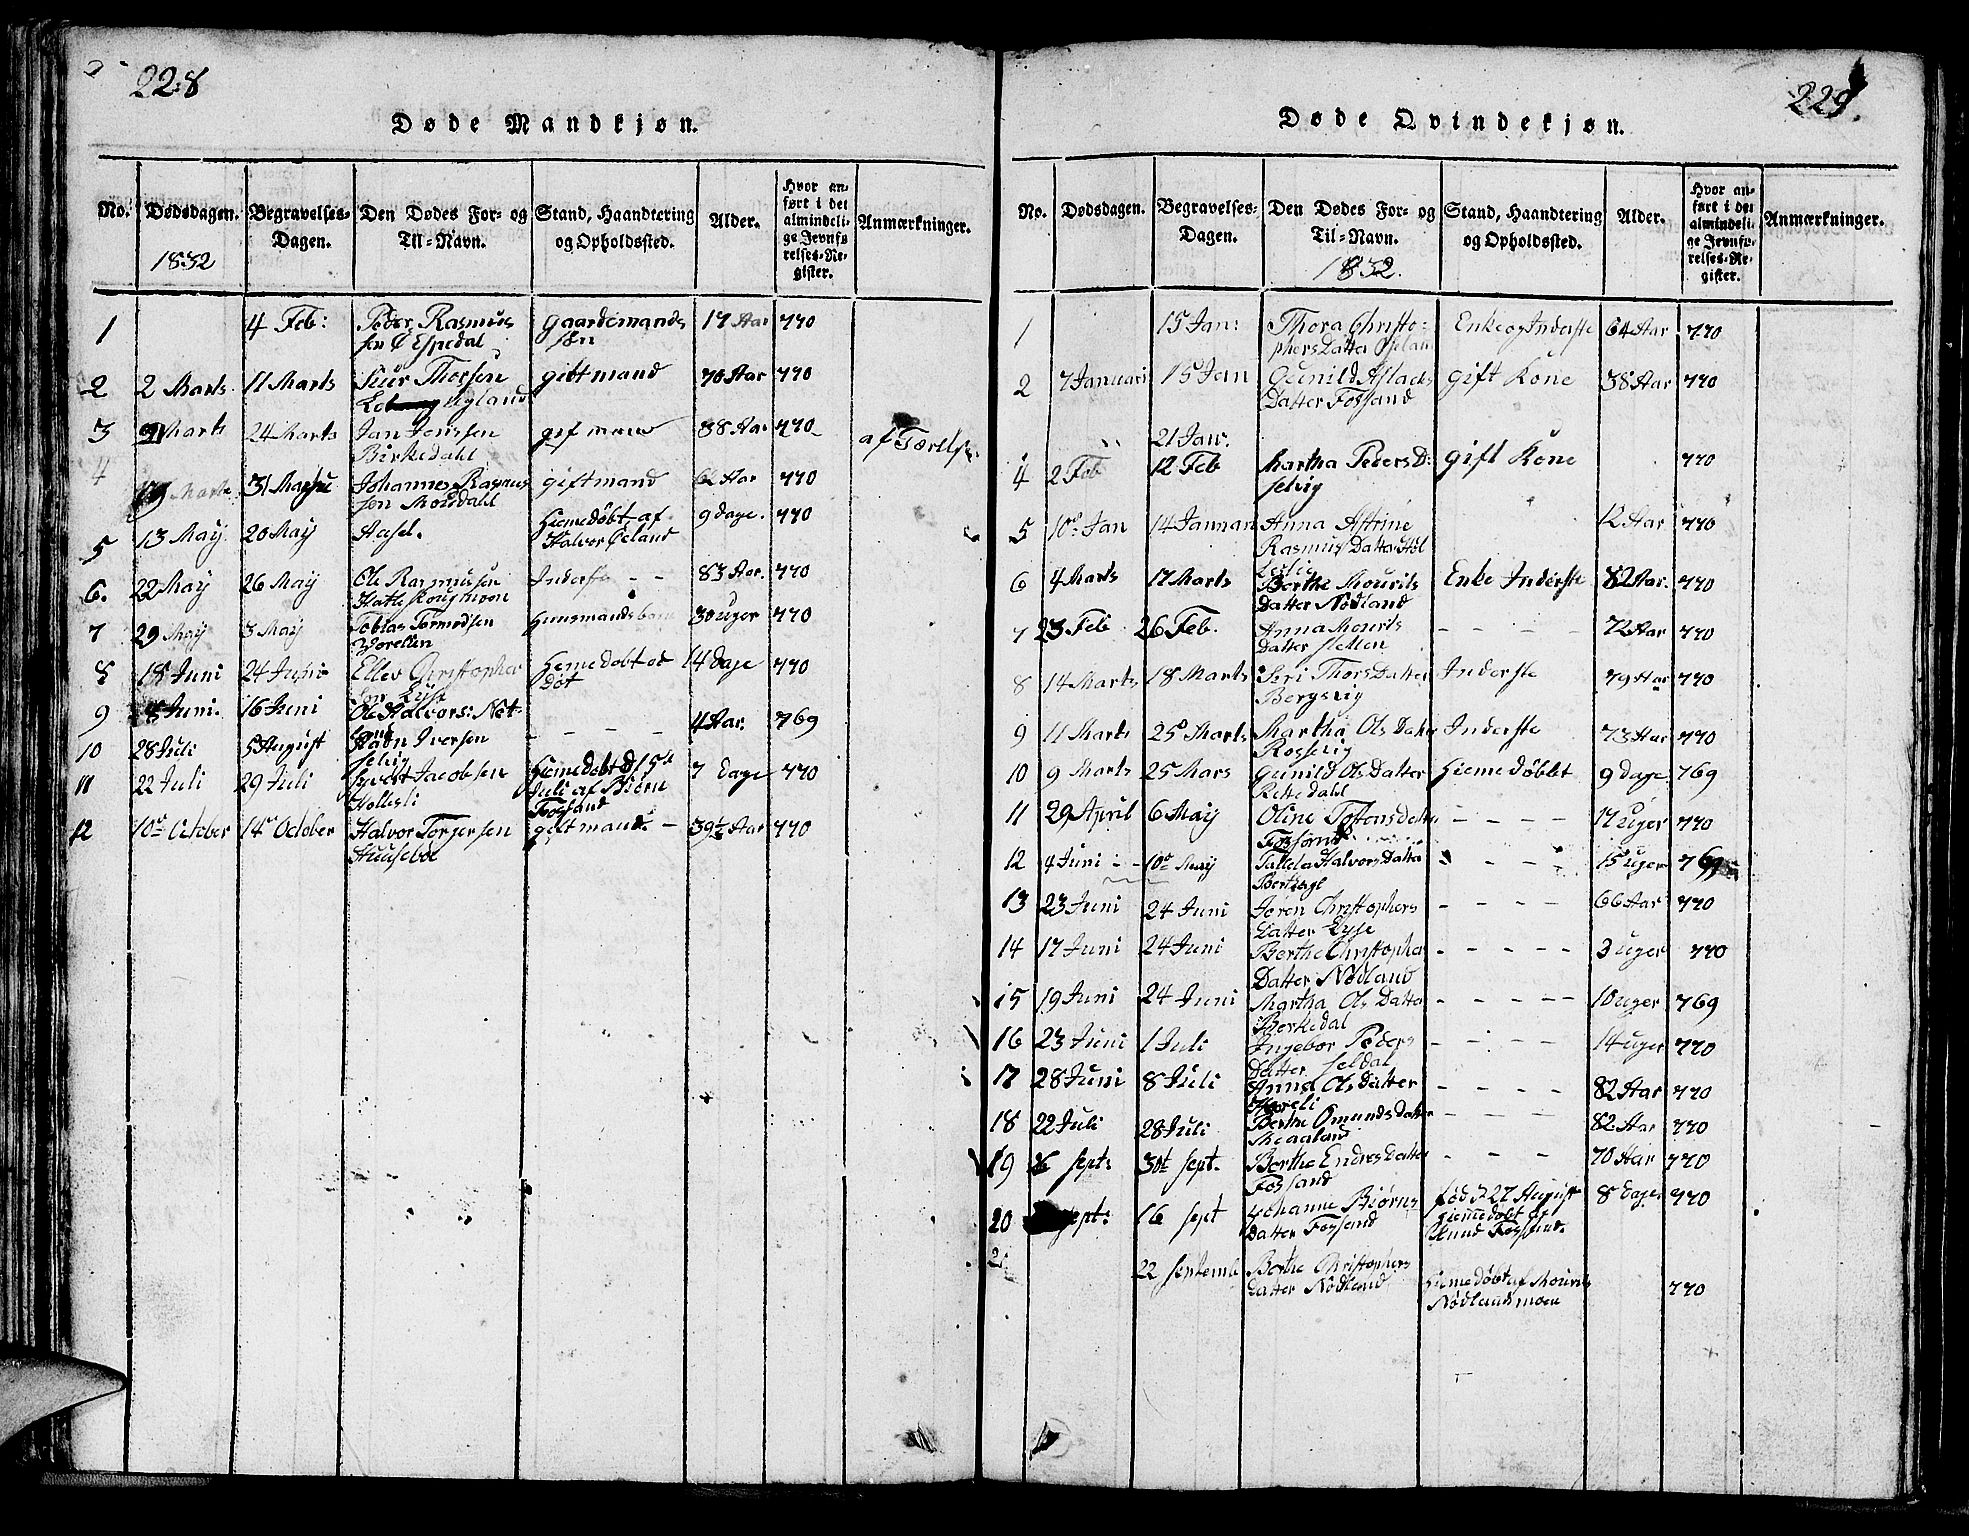 228
Døde Mandkjøn.
No.
Dødsdagen.
1832
Begravelses-
Dagen.
Den Dødes For- og
Til-Navn.
Stand, Haandtering
og Opholdssted.
Alder.
Hvor an-
ført i det
almindeli-
ge Jevnfø-
relses-Re-
gister.
Anmærkninger.
1 4 Feb: Peder Rasmus gaardemands 17 Aar 770
sen Espedal søn
2 2 Marts 11 Marts Thorsen giftmand 70 Aar 770
Ugland
3 Marts 24 Marts Jan Jonssen gif 38 Aar 770
Birkedahl
4 Marts 31 Johannes Rasmus giftmand 62 Aar 770
sen
5 13 May 20 May Aasel. Hiemedøbt af 9 dage. 770
Halvor Øeland
6. 22 May 26 May Ole Rasmusen Inderst - - 83 Aar. 770
Hatleskougmoen
7 29 May 3 May Tobias Tormodsen Huusmandsbarn 30 uger 770
8 18 Juni 24 Juni Ellev Christopher Hiemedøbt od 14 dage 770
sen Lyse døt
9 Juni. 16 Juni Ole Halvors: Nøt- - - - - 4 Aar. 769
land
10 28 Juli 5 August Iversen
Selvig
11 22 Juli 29 Juli Jacobsen Hiemedøbt d 15de 7 Dage 770
Hollesli Juli af Biørn
Fossand
12 10de October 14de October Halvor Torgersen giftmand - 39½ Aar 770
Huusebøe
229.
Døde Qvindekjøn.
No.
Dødsdagen.
Begravelses-
Dagen.
Den Dødes For- og
Til-Navn.
1832.
Stand, Haandtering
og Opholdssted.
Alder.
Hvor an-
ført i det
almindeli-
ge Jevnfø-
relses-Re-
gister.
Anmærkninger.
1 15 Jan: Thora Christo- Enke og Inderste 64 Aar 770
phersDatter
2 7 Januari 15 Jan Gunild Aslacks gift Kone 38 Aar 770
Datter Fossand
21 Jan:
4 2 Feb 12 Feb Martha Peders D: gift Kone 770
Selvig
5 10de Jan 14 Januari Anna Astrine 12 Aar 770
Rasmus Datter
6 4 Marts 17 Marts Berthe Mourits Enke Inderste 82 Aar. 770
Datter Nødland
7 23 Feb 26 Feb. Anna Mourits - - - - 72 Aar 770
Datter Sletten
8 14 Marts 18 Marts Siri Thors Datter Inderste 79 Aar 770
Bergsvig
9 11 Marts 25de Marts Martha Ols Datter Inderste 73 Aar 770
Rossevig
10 9 Marts 25 Mars Gunild Ols Datter Hiemedøbbt 9 dage 769
11 29 April 6 May Oline datter - - - - 17 uger 770
Fossand
12 4 Juni - - 10de May Halvors Datter - - - 15 uger 769
13 23 Juni 24 Juni Jøren Christophers - - - - 66 Aar 770
Datter Lyse
14 17 Juni 24 Juni Berthe Christopher - - - - 3 uger 770
Datter Nødland
15 19 Juni 24 Juni Martha Ols Datter - - - - 10 uger 769
Berkedal
16 23 Juni 1 Juli Ingebor Peders - - - - 14 uger 770
Datter Seldal
17 28 Juni 8 Juli Anna Ols Datter - - - - 82 Aar 770
18 22 Juli 28 Juli Berthe Omunds datter - - - - 82 Aar 770
19 sept: 30t sept. Berthe Endres Datter - - - 70 Aar 770
Fossand
20 sept: 16 sept Johanne Biørns fød d 27 August 8 Dage 770
Datter Fossand Hiemedøbt af
Knud Fossand.
22 septemb Berthe Christophers
Datter Nødland Hiemedøbt af Mourits 770
Nødlandsmoen